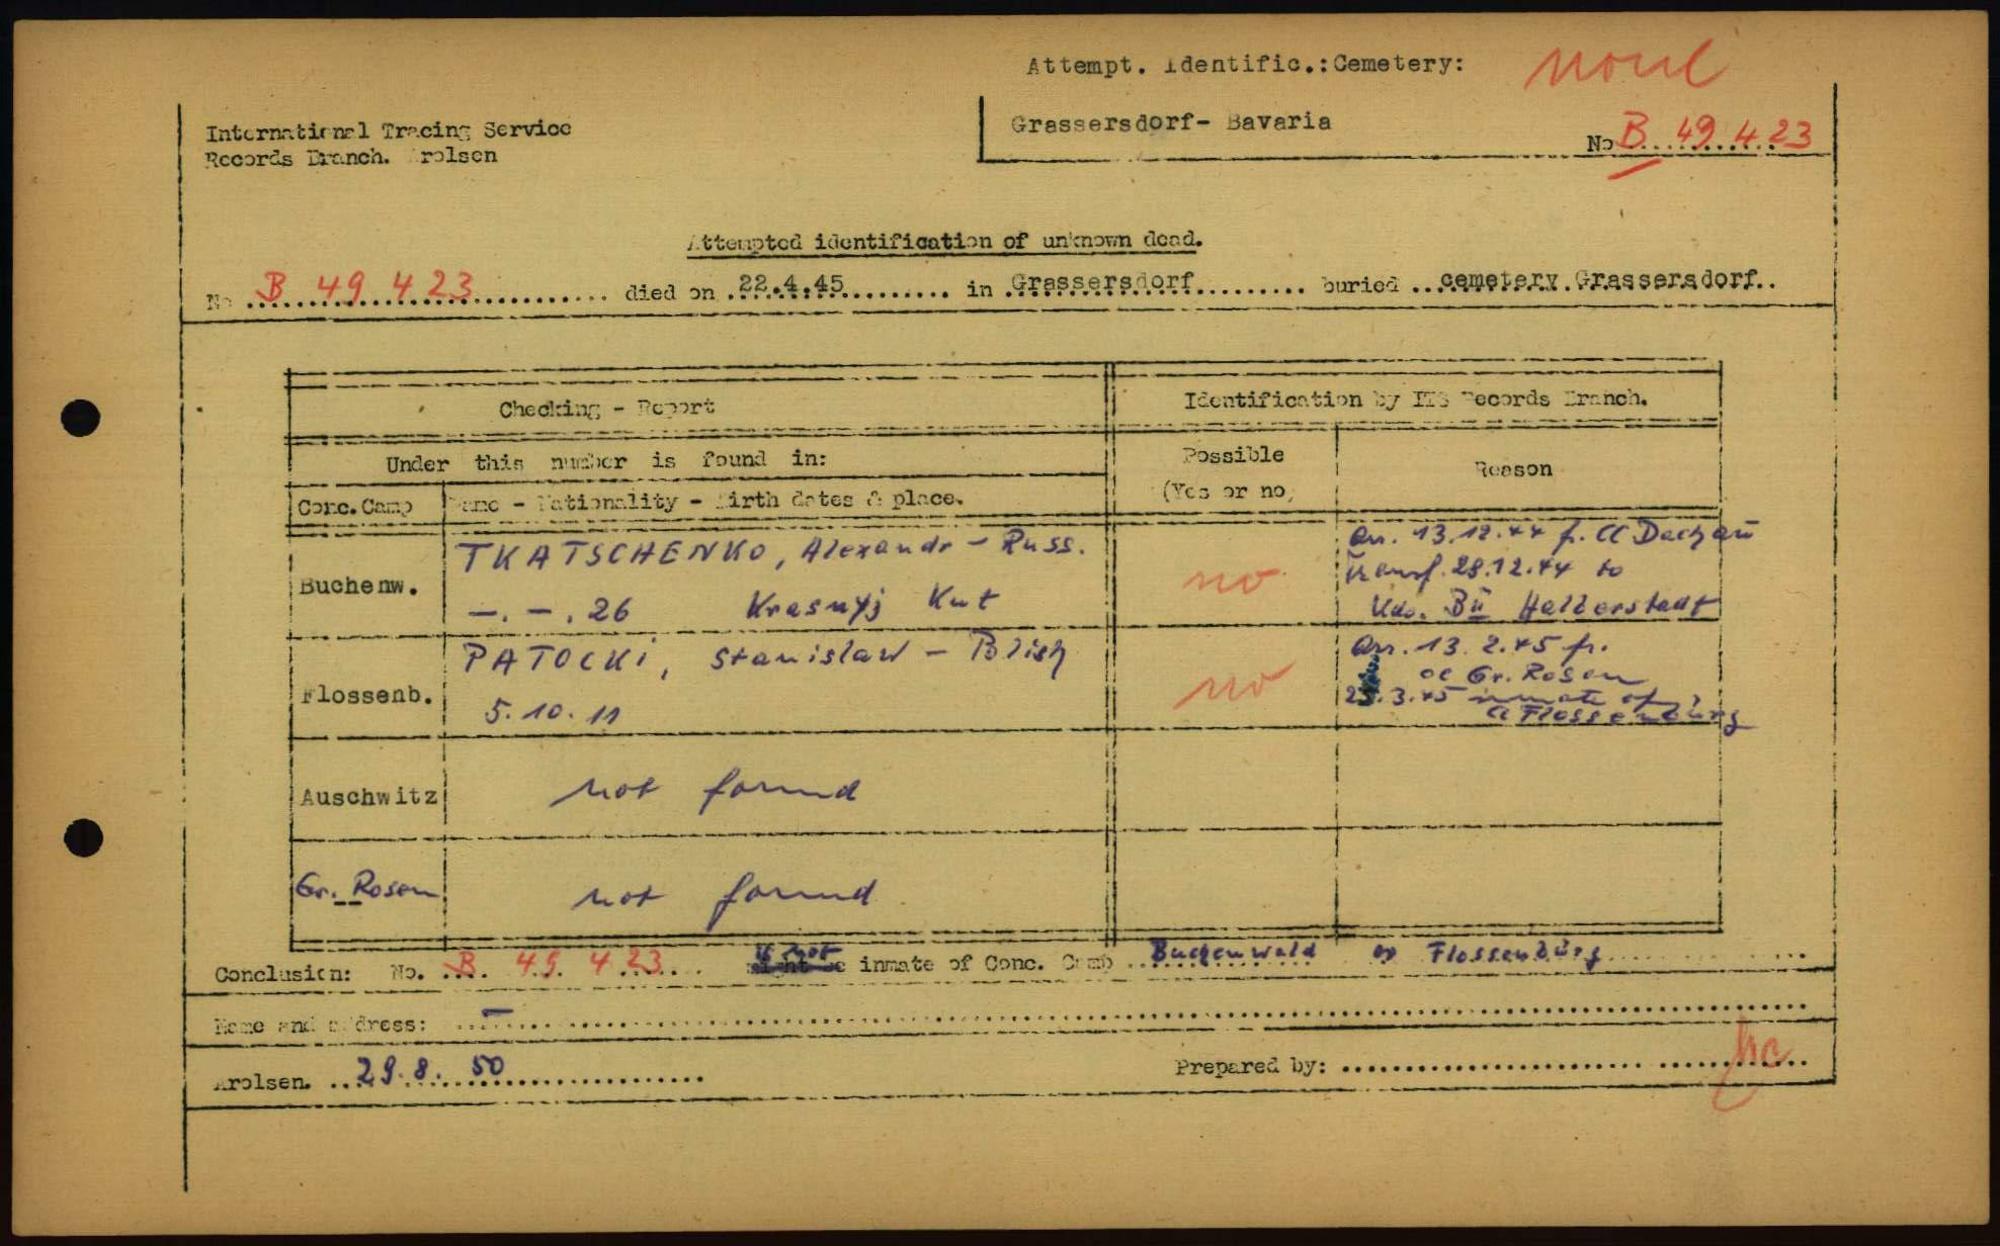 Attempt. Identific.:Cemetery:
Grassersdorf- Bavaria
No B 49 4 23
International Tracing Service
Records Branch. Arolsen
Attempted identification of unknown dead.
No B 49 4 23 died on 22.4.45 in Grassersdorf buried cemetery Grassersdorf
Checking - Report
Identification by ITS Records Branch.
Under this number is found in:
Possible
(Yes or no)
Reason
Conc.Camp
Name - Nationality - Birth dates & place.
Buchenw.
TKATSCHENKO, Alexandr - Russ.
-. -. 26 Krasnyj Kut
no
arr. 13.12.44 fr. CC Dachau
transf. 28.12.44 to
Kdo. Bu Halberstadt
Flossenb.
PATOCKI, Stanislaw - Polish
5.10.11
no
arr. 13.2.45 fr.
cc Gr. Rosen
.3.45 inmate of
CC Flossenbürg
Auschwitz
not found
Gr. Rosen
not found
Conclusion: No. B 49 4 23 is not inmate of Conc. Camp Buchenwald or Flossenbürg
Name and address: -
Arolsen. 29.8. 50
Prepared by: